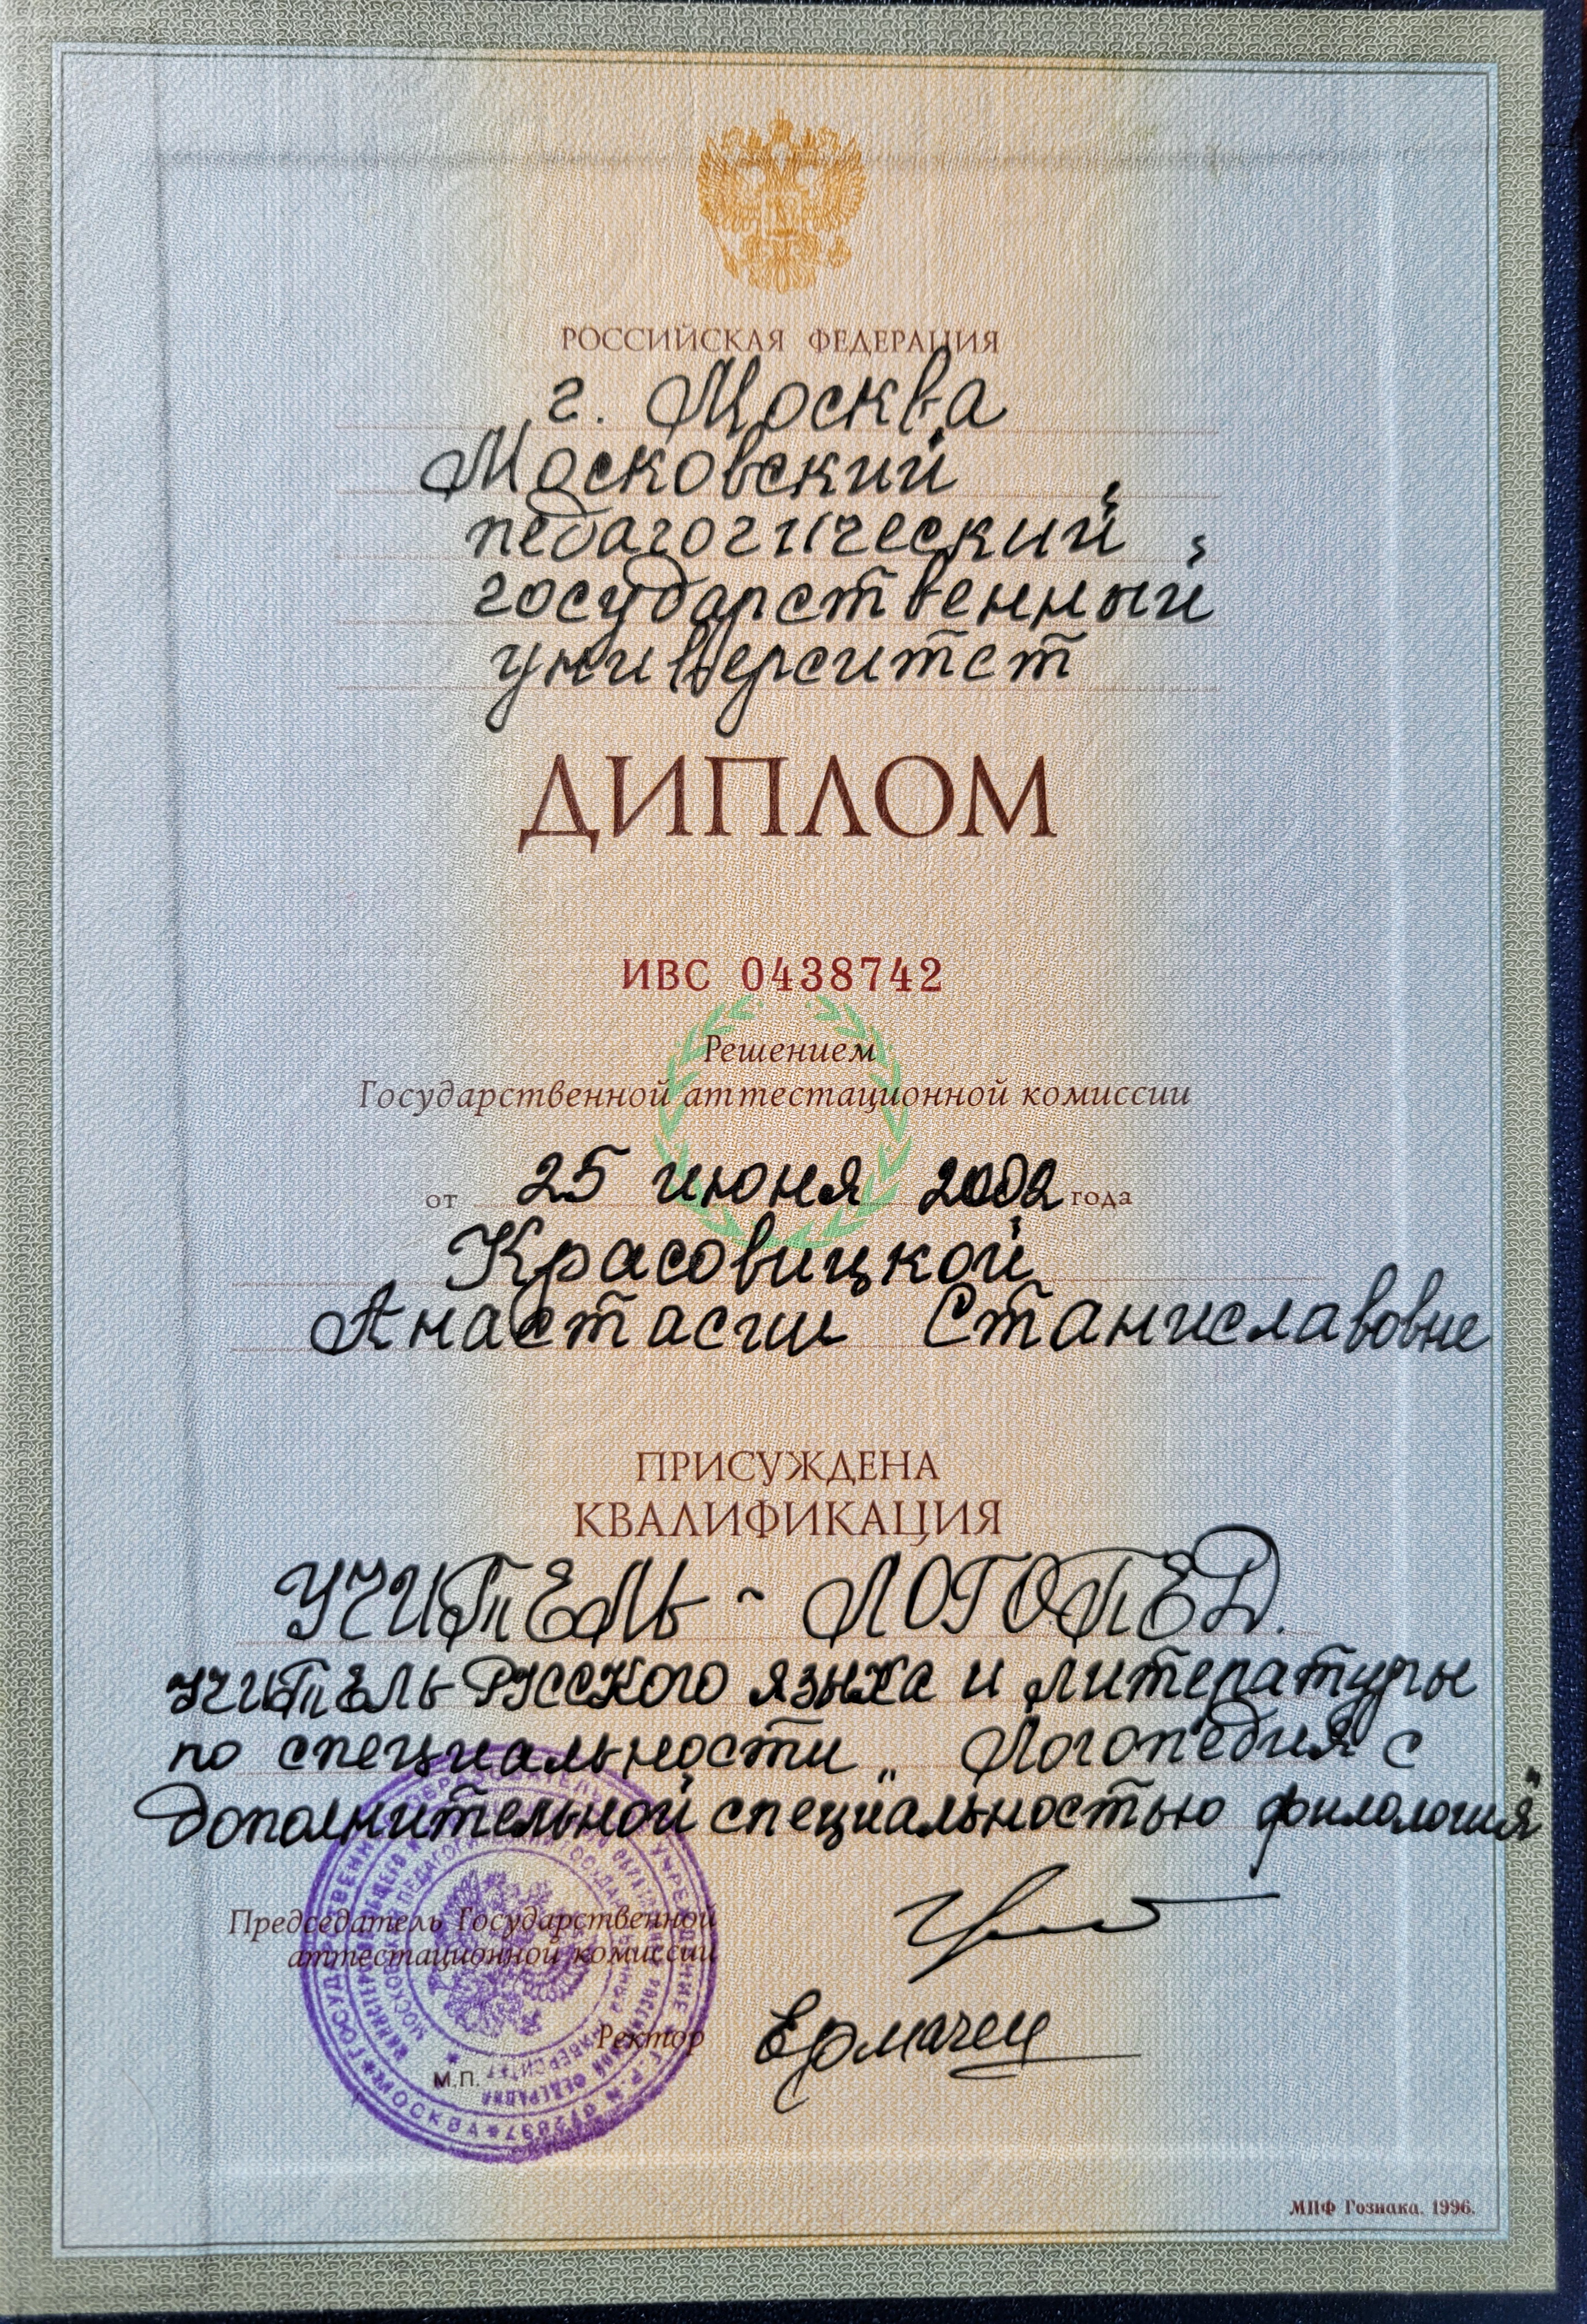 РОССИЙСКАЯ ФЕДЕРАЦИЯ
г. Москва
Московский
педагогический
государственный
университет
ДИПЛОМ
ИВС 0438742
Решением
Государственной аттестационной комиссии
от 25 июня 2002 года
Красовицкой
Анастасии Станиславовне
ПРИСУЖДЕНА
КВАЛИФИКАЦИЯ
УЧИТЕЛЬ - ЛОГОПЕД.
УЧИТЕЛЬ РУССКОГО языка и литературы
по специальности „ Логопедия с
дополнительной специальностью филология"
Председатель Государственной
аттестационной комиссии
Ректор
М.П.
МОСКВА
МПФ Гознака. 1996.